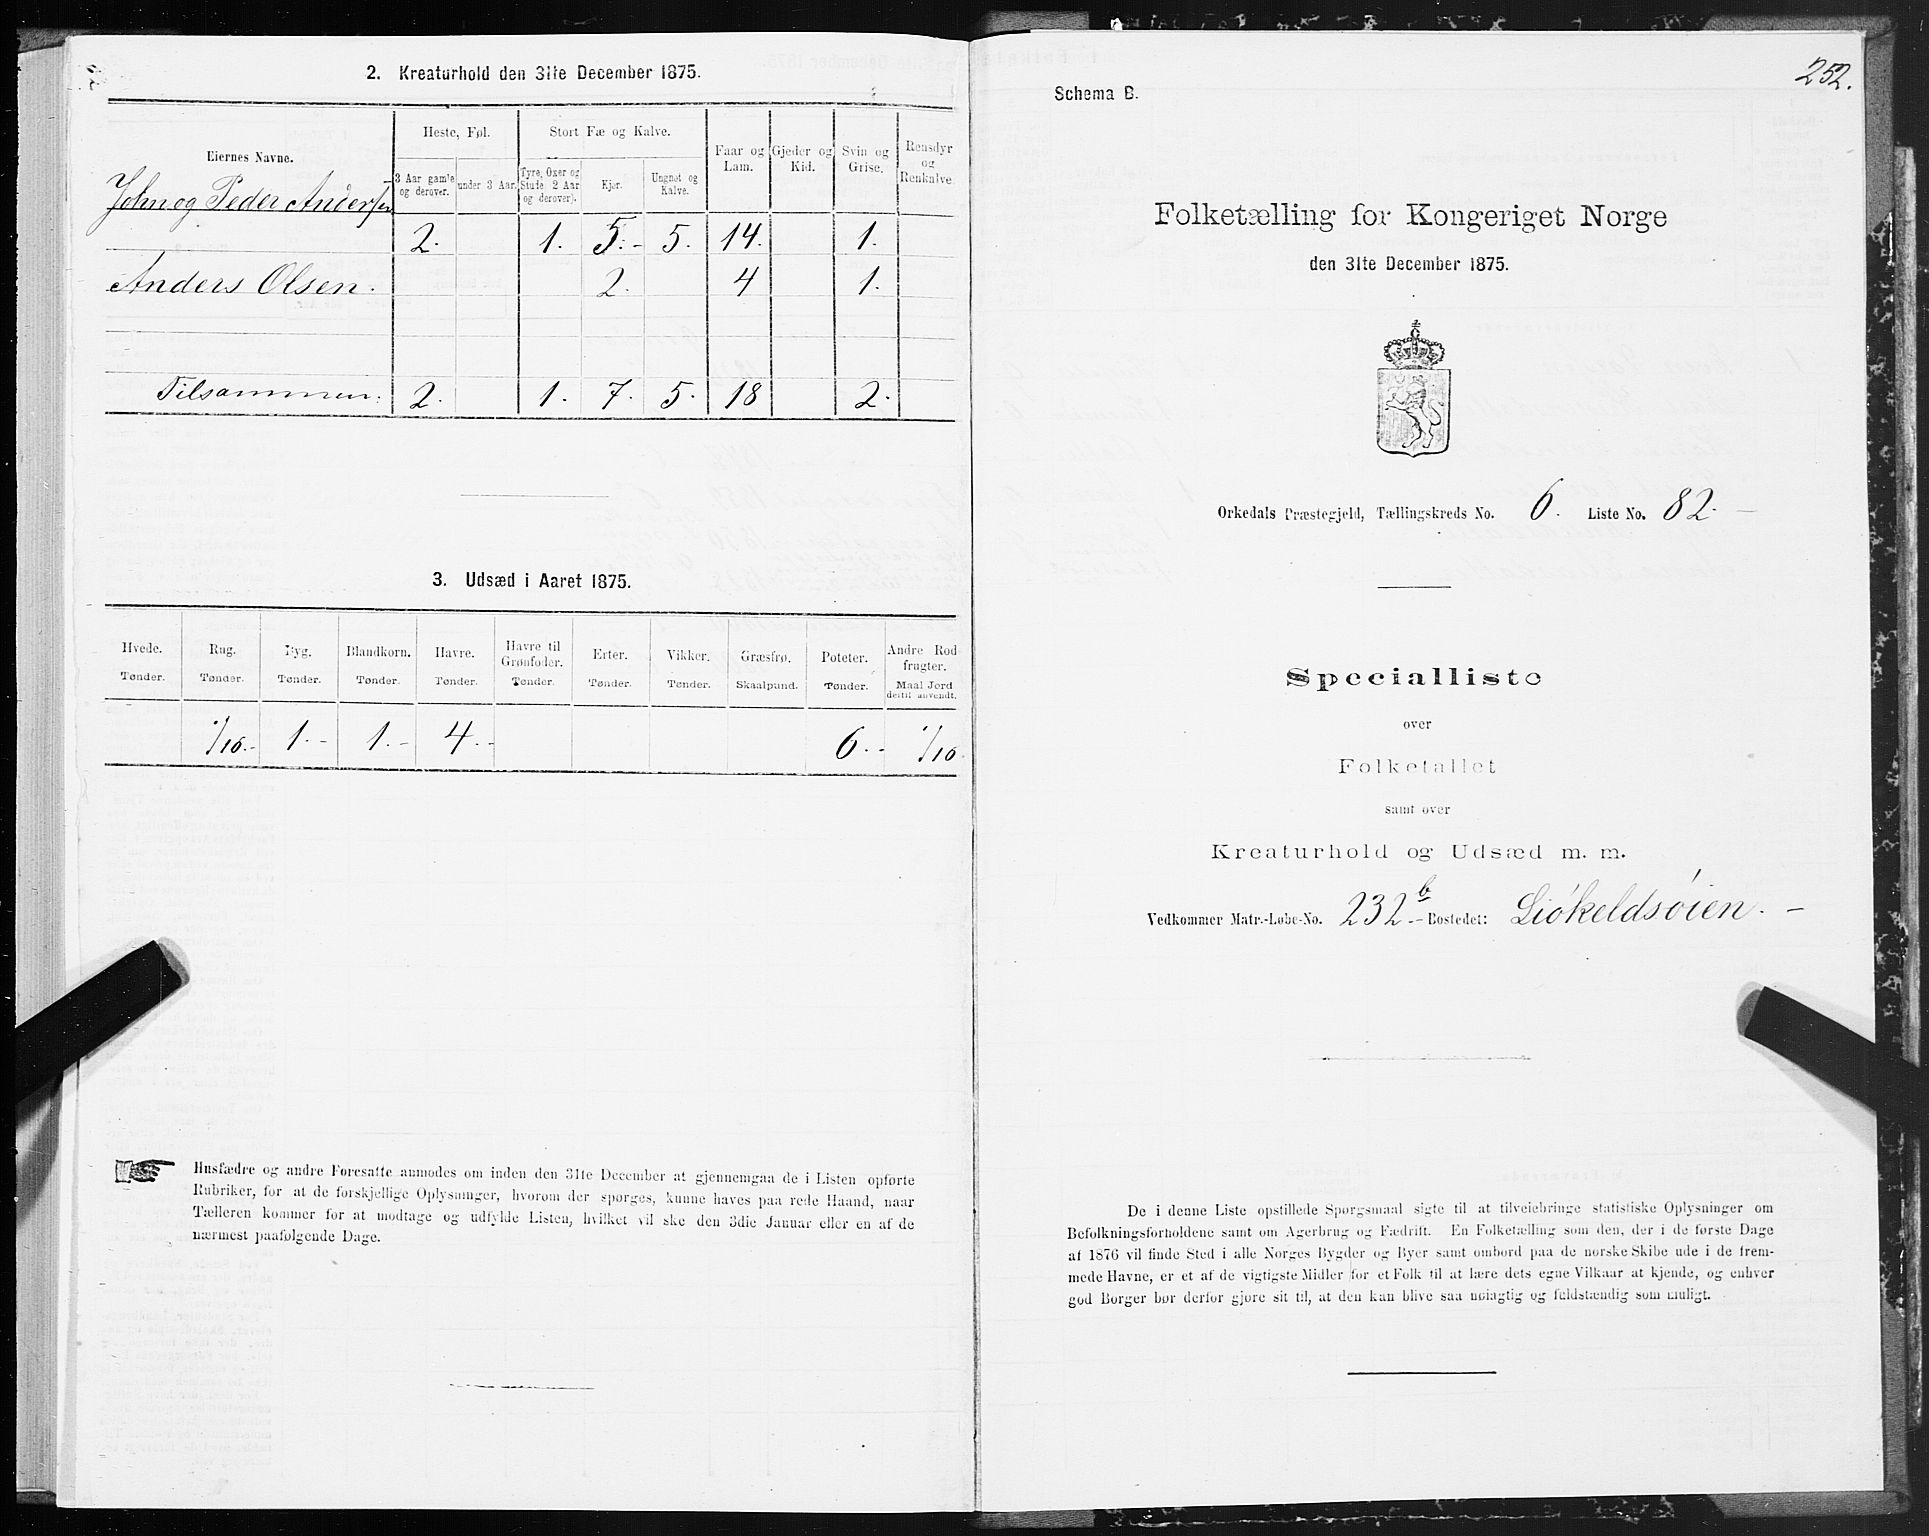 2. Kreaturhold den 31te December 1875.
Eiernes Navne.
Heste, Føl.
Stort Fæ og Kalve.
Faar og Lam.
Gjeder og Kid.
Svin og Grise.
Rensdyr og Renkalve.
3 Aar gamle og derover.
under 3 Aar.
Tyre, Oxer og Stude 2 Aar og derover).
Kjør.
Ungnøt og Kalve.
John og Peder Andersen
2. 1. 5.- 5. 14. 1.
Anders Olsen. 2. 4 1.
Tilsammen: 2. 1. 7. 5. 18 2.
3. Udsæd i Aaret 1875.
Hvede. Rug. Byg. Blandkorn. Havre. Havre til Grønfoder. Erter. Vikker. Græsfrø. Poteter. Andre Rodfrugter.
Tønder. Tønder. Tønder. Tønder. Tønder. Tønder. Tønder. Tønder. Skaalpund. Tønder. Maal Jord dertil anvendt.
1/10.- 1.- 1.- 4.- 6.- 1/10.
Husfædre og andre Foresatte anmodes om inden den 31te December at gjennemgaa de i Listen opførte
Rubriker, for at de forskjellige Oplysninger, hvorom der spørges, kunne haves paa rede Haand, naar
Tælleren kommer for at modtage og udfylde Listen, hvilket vil ske den 3die Januar eller en af de
nærmest paafølgende Dage.
252.
Schema B.
Folketælling for Kongeriget Norge
den 31te December 1875.
Orkedals Præstegjeld, Tællingskreds No. 6. Liste No. 82.-
Specialliste
over
Folketallet
samt over
Kreaturhold og Udsæd m. m.
Vedkommer Matr.-Løbe-No. 232b.- Bostedet: Liökeldsöien.-
De i denne Liste opstillede Spørgsmaal sigte til at tilveiebringe statistiske Oplysninger om
Befolkningsforholdene samt om Agerbrug og Fædrift. En Folketælling som den, der i de første Dage
af 1876 vil finde Sted i alle Norges Bygder og Byer samt ombord paa de norske Skibe ude i de frem-
mede Havne, er et af de vigtigste Midler for et Folk til at lære dets egne Vilkaar at kjende, og enhver
god Borger bør derfor gjøre sit til, at den kan blive saa nøiagtig og fuldstændig som muligt.